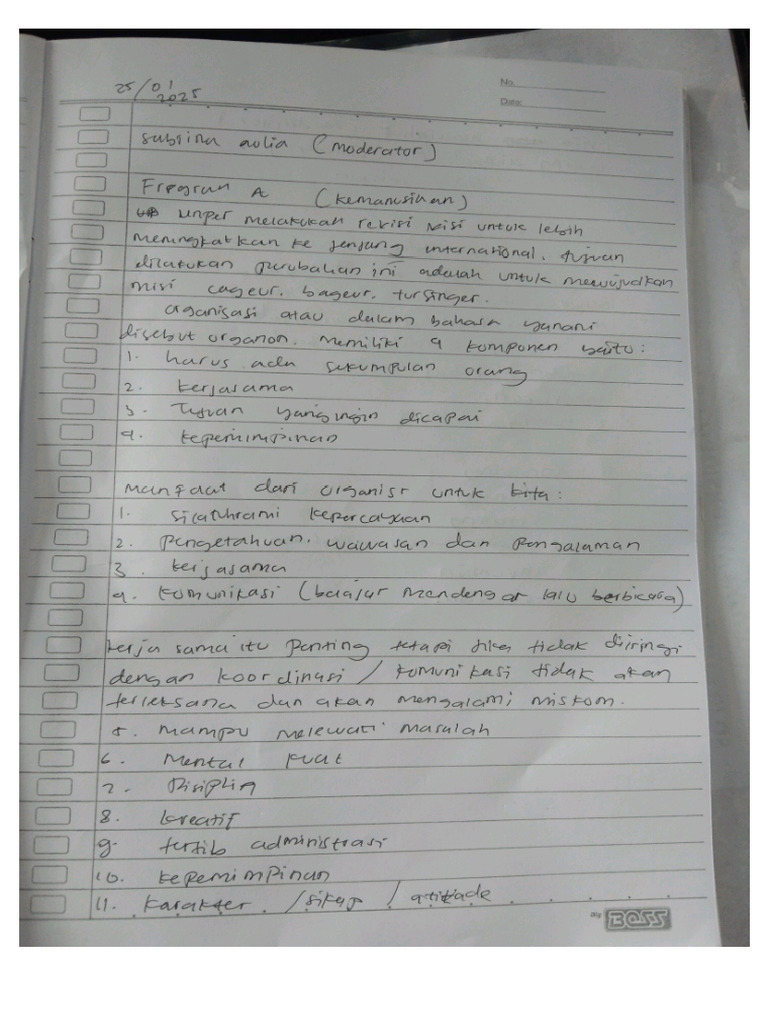 No.
Date:
25/01
2025
Sabrina aulia (moderator)
Program A (kemanusiaan)
unper melakukan revisi visi untuk lebih
meningkatkan ke jenjang international. tujuan
dilakukan perubahan ini adalah untuk mewujudkan
misi cageur. bageur. tur singer.
organisasi atau dalam bahasa yunani
disebut organon. memiliki 4 komponen yaitu:
1. harus ada sekumpulan orang
2. kerjasama
3. Tujuan yang ingin dicapai
4. kepemimpinan
manfaat dari organisr untuk kita:
1. silatuhrami kepercayaan
2. pengetahuan. wawasan dan pengalaman
3. kerjasama
4. komunikasi (belajar mendengar lalu berbicara)
kerja sama itu penting tetapi jika tidak diiringi
dengan koordinasi / komunikasi tidak akan
terleksana dan akan mengalami miskom.
5. mampu melewati masalah
6. Mental kuat
7. Disiplin
8. kreatif
9. tertib administrasi
10. kepemimpinan
11. karakter / sikap / atitade
Big BOSS